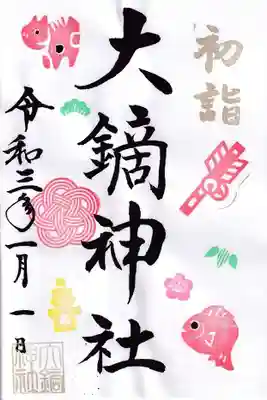 初詣
大鏑神社
令和三年一月一日
大鏑神社